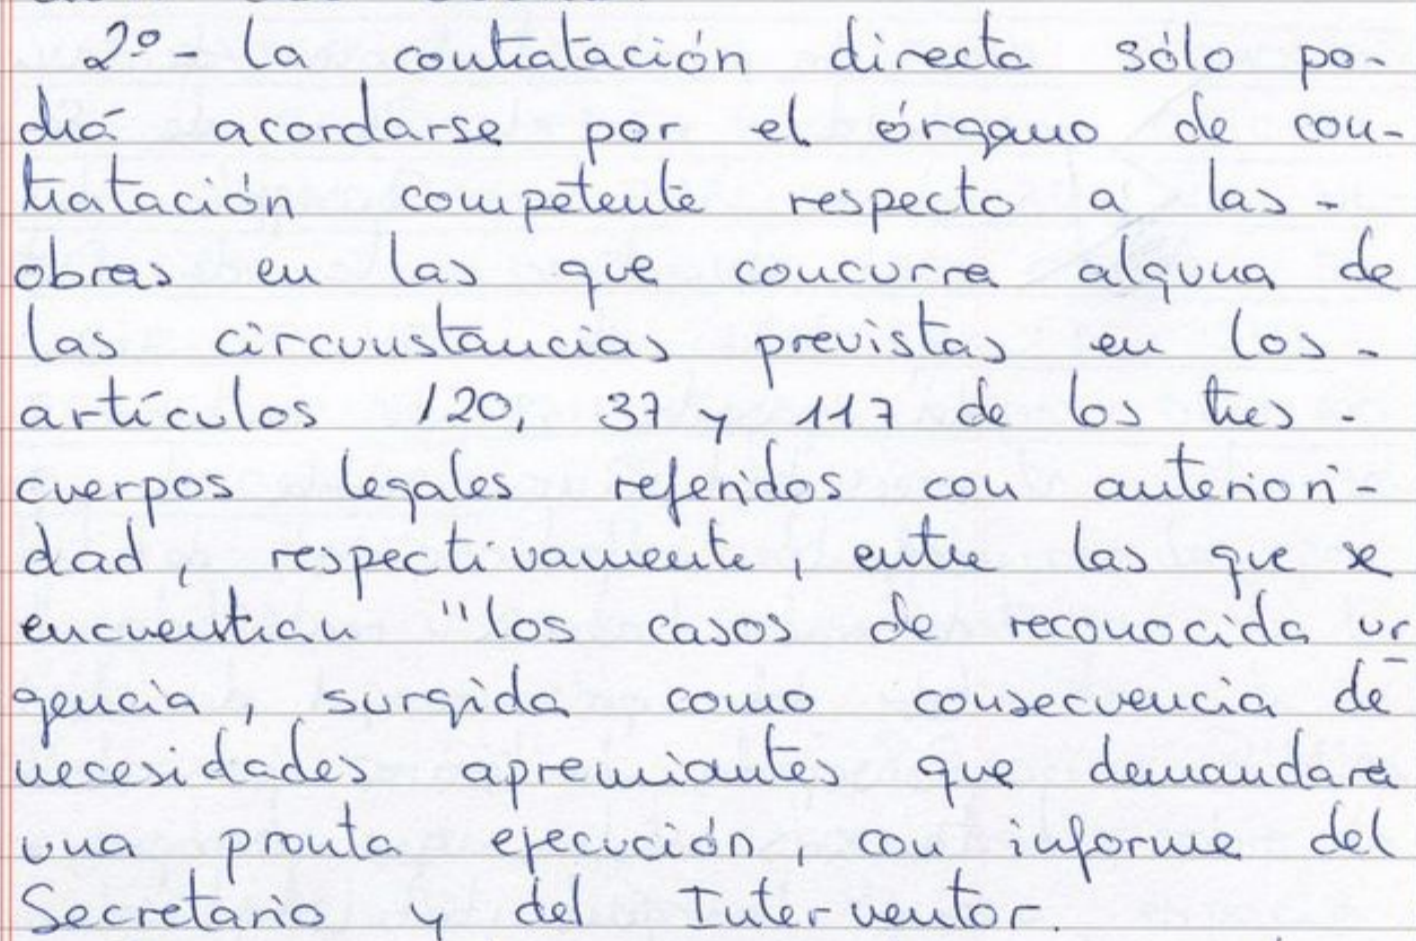 2º- La contratación directa sólo po-
drá acordarse por el órgano de con-
tratación competente respecto a las -
obras en las que concurra alguna de
las circunstancias previstas en los -
artículos 120, 37 y 117 de los tres -
cuerpos legales referidos con anteriori-
dad, respectivamente, entre las que se
encuentran "los casos de reconocida ur
gencia, surgida como consecuencia de
necesidades apremiantes que demandara
una pronta ejecución, con informe del
Secretario y del Interventor.